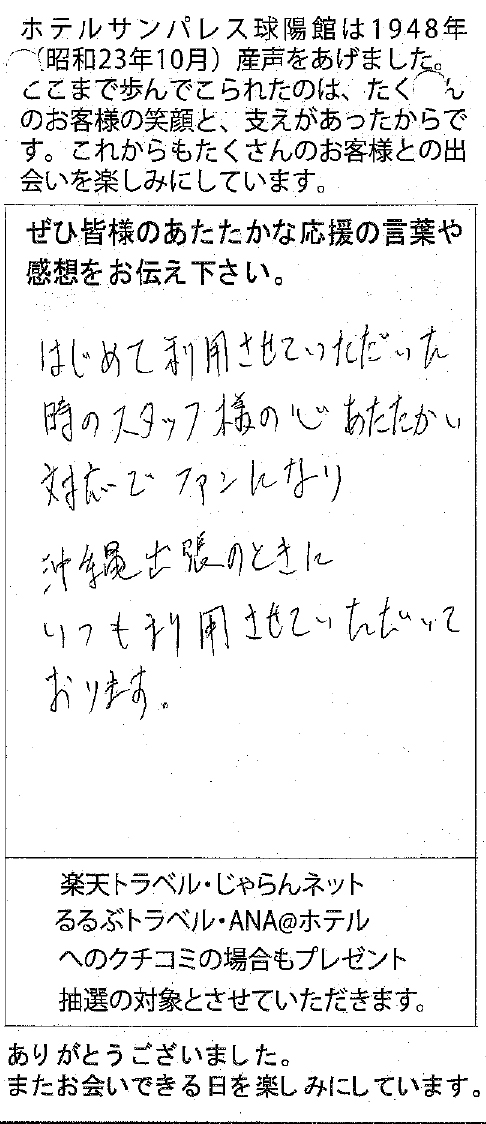 ホテルサンパレス球陽館は1948年
(昭和23年10月）産声をあげました。
ここまで歩んでこられたのは、たく ん
のお客様の笑顔と、支えがあったからで
す。これからもたくさんのお客様との出
会いを楽しみにしています。
ぜひ皆様のあたたかな応援の言葉や
感想をお伝え下さい。
はじめて利用させていただいた
時のスタッフ様の心あたたかい
対応でファンになり
沖縄出張のときに
いつも利用させていただいて
おります。
楽天トラベル・じゃらんネット
るるぶトラベル・ANA@ホテル
へのクチコミの場合もプレゼント
抽選の対象とさせていただきます。
ありがとうございました。
またお会いできる日を楽しみにしています。